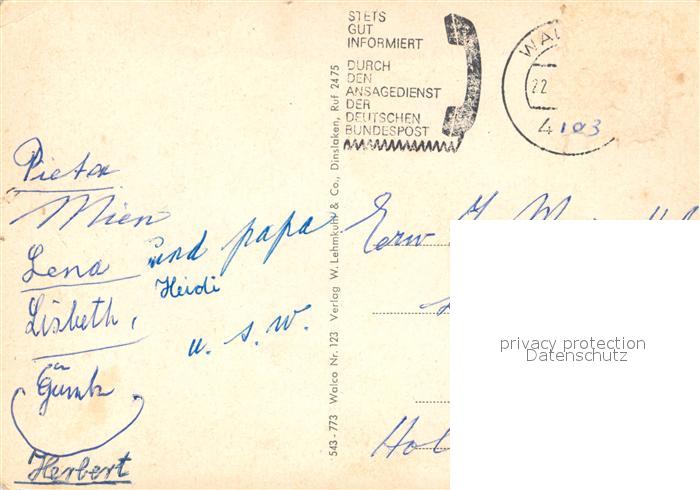 STETS
GUT
INFORMIERT
DURCH
DEN
ANSAGEDIENST
DER
DEUTSCHEN
BUNDESPOST
WAL
22
4103
Pieta
Mien
Lena
Lisbeth,
und papa
Heidi
u. s. w.
Herbert
543-773 Walco Nr. 123 Verlag W. Lehmkuhl & Co., Dinslaken, Ruf 2475
Hol
privacy protection
Datenschutz